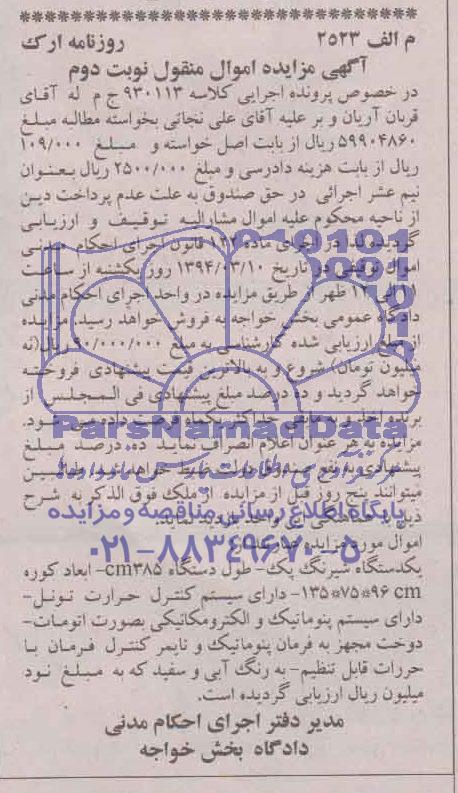 م الف ۲۵۲۳ روزنامه ارک
آگهی مزایده اموال منقول نوبت دوم
در خصوص پرونده اجرایی کلاسه ۹۳۰۱۱۳ ج م له آقای
قربان آریان و بر علیه آقای علی نجاتی بخواسته مطالبه مبلغ
۵۹۹۰۴۸۶۰ ریال از بابت اصل خواسته و مبلغ ۱۰۹/۰۰۰
ریال از بابت هزینه دادرسی و مبلغ ۲۵۰۰/۰۰۰ ریال بعنوان
نیم عشر اجرائی در حق صندوق به علت عدم پرداخت دین
از ناحیه محکوم علیه اموال مشارالیه توقیف و ارزیابی
گردیده لذا در اجرای ماده قانون اجرای احکام مدنی
اموال توقیفی در تاریخ ۱۳۹۴/۰۳/۱۰ روز یکشنبه از ساعت
۱۱ الی ۱۲ ظهر از طریق مزایده در واحد اجرای احکام مدنی
دادگاه عمومی بخش خواجه به فروش خواهد رسید. مزایده
از مبلغ ارزیابی شده کارشناسی به مبلغ ۹۰/۰۰۰/۰۰۰ ریال (نه
میلیون تومان) شروع و به بالاترین قیمت پیشنهادی فروخته
خواهد گردید و ده درصد مبلغ پیشنهادی فی المجلس از
برنده اخذ و به مابقی حداکثر یکماه فرصت داده می شود.
مزایده به هر عنوان اعلام انصراف نماید ده درصد مبلغ
پیشنهادی به نفع صندوق دولت ضبط خواهد شد
میتوانند پنج روز قبل از مزایده از ملک فوق الذکر به شرح
ذیل با هماهنگی این واحد بازدید نمایند.
اموال مورد مزایده عبارتند از:
یکدستگاه شیرنگ پک- طول دستگاه cm۳۸۵- ابعاد کوره
۱۳۵*۷۵*۹۶ cm- دارای سیستم کنترل حرارت تونل-
دارای سیستم پنوماتیک و الکترومکانیکی بصورت اتومات-
دوخت مجهز به فرمان پنوماتیک و تایمر کنترل فرمان با
حررات قابل تنظیم- به رنگ آبی و سفید که به مبلغ نود
میلیون ریال ارزیابی گردیده است.
مدیر دفتر اجرای احکام مدنی
دادگاه بخش خواجه
ParsNamadData
پایگاه اطلاع رسانی مناقصه و مزایده
۰۲۱-۸۸۳۴۹۶۷۰-۵